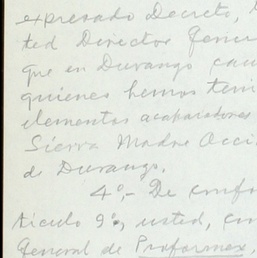 expresado Decreto,
ted Director Gene
que en Durango cau
quienes hemos teni
elementos acaparadores
Sierra Madre Occi
de Durango.
4º.- De confo
tículo 9º, usted, com
General de Proformex,